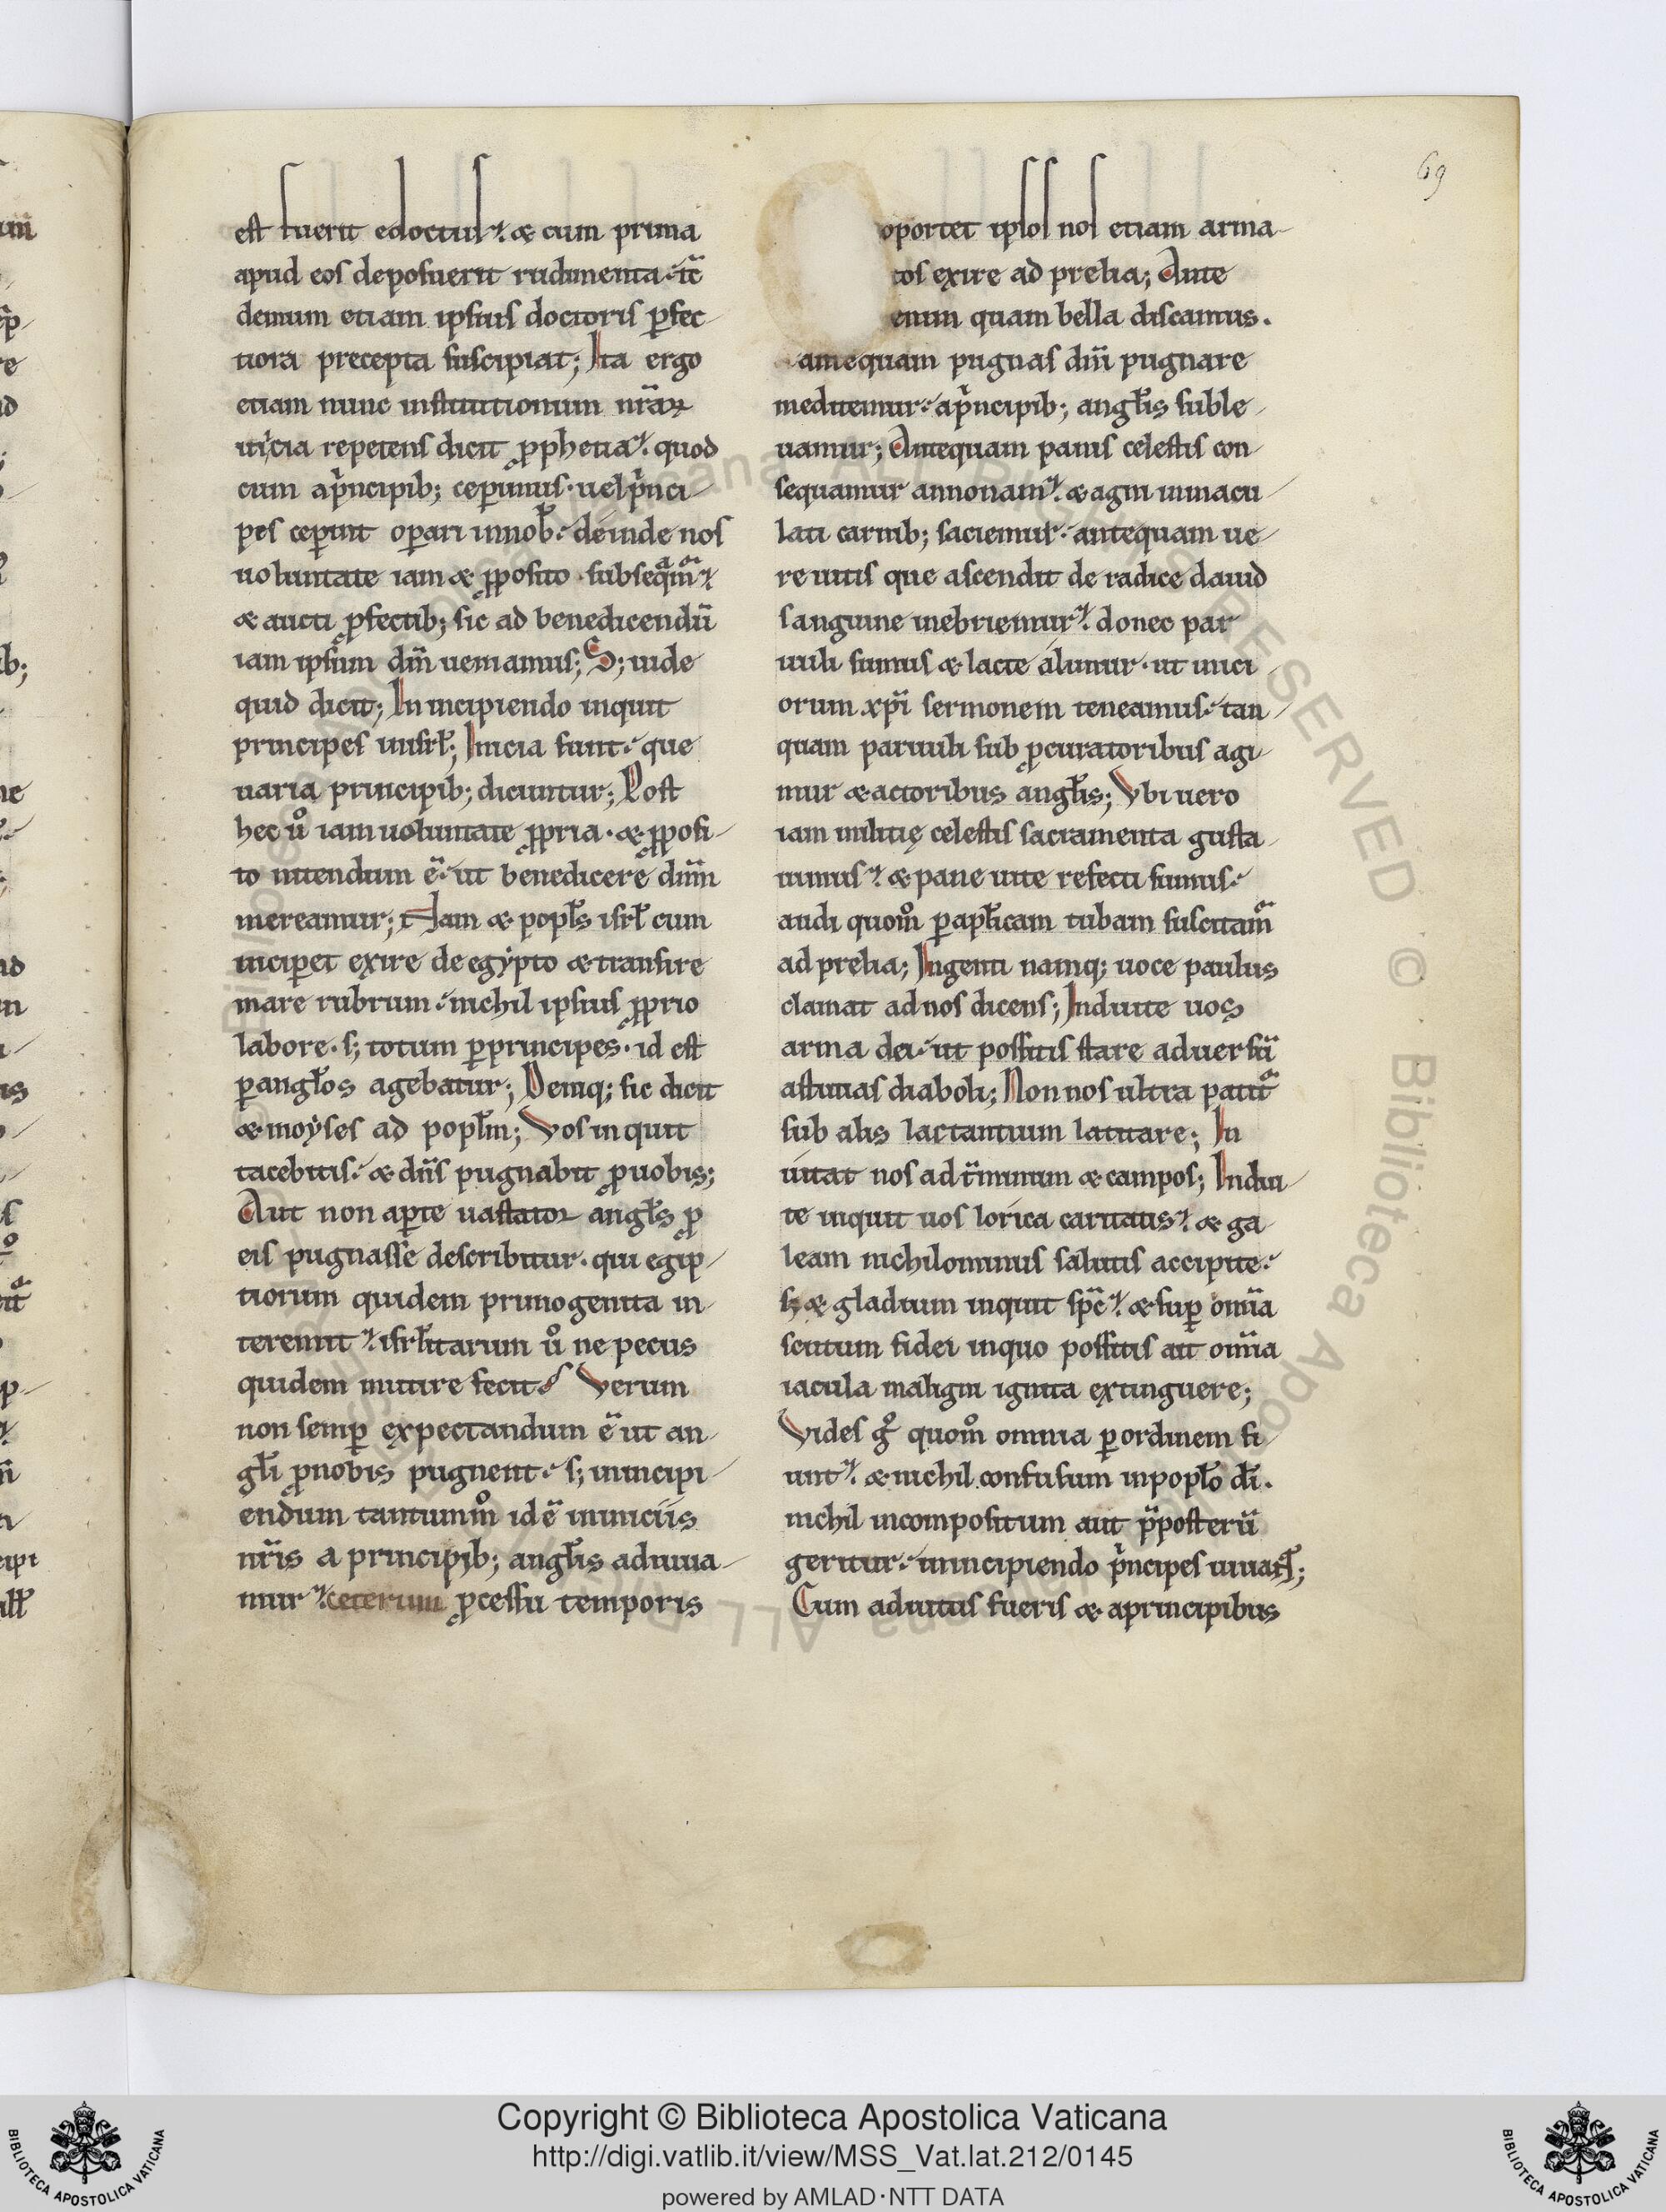 69
est fuerit edoctus; & cum prima
apud eos deposuerit rudimenta. it̄
demum etiam ipsius doctoris ꝑfec-
tiora precepta suscipiat; Ita ergo
etiam nunc institutionum nr̄aꝝ
inicia repetens dicit ꝓphetia. quod
cum a pͥncipib; cepimus. uel pͥnci-
pes ceꝑint oꝑari in nob̄. deinde nos
uoluntate iam & ꝓposito subseqᵃmᵃ
& aucti ꝓfectib; sic ad benedicendū
iam ipsum dn̄m ueniamus; S; uide
quid dicit; In incipiendo inquit
principes in isrl̄; Inicia sunt. que
uaria principib; dicuntur; Post
hec uͦ iam uoluntate ꝓpria. & ꝓposi-
to nitendum ē. ut benedicere dn̄m
mereamur; Nam & popl̄s isrl̄ cum
inciꝑet exire de egẏpto & transire
mare rubrum. nichil ipsius ꝓprio
labore. s; totum ꝑ principes. id est
ꝑ angl̄os agebatur; Deniq; sic dicit
& moẏses ad popl̄m; Vos inquit
tacebitis. & dn̄s pugnabit ꝓ uobis;
Aut non aꝑte uastatoꝛ angl̄s ꝓ
eis pugnasse describitur. qui egip-
tiorum quidem primogenita in-
teremit. isrl̄itarum uͦ ne pecus
quidem mutire fecit. Verum
non semꝑ expectandum ē ut an-
gl̄i ꝓ nobis pugnent. s; in incipi-
endum tantummͦ id ē in iniciis
nr̄is a principib; angl̄is adiuua-
mur. ceterum ꝓcessu temporis
oportet ipsos nos etiam arma-
tos exire ad prelia; Ante
enim quam bella discamus.
antequam pugnas dn̄i pugnare
meditemur. a pͥncipib; angl̄is suble-
uamur; Antequam panis celestis con-
sequamur annonam. & agni inmacu-
lati carnib; saciemur. antequam ue-
re uitis que ascendit de radice dauid
sanguine inebriemur. donec par-
uuli sumus & lacte alimur. ut inici-
orum xp̄i sermonem teneamus. tan-
quam paruuli sub ꝓcuratoribus agi-
mur & actoribus angl̄is; Vbi uero
iam militię celestis sacramenta gusta-
uimus. & pane uite refecti sumus.
audi quomͦ ꝑ apl̄icam tubam suscitamᵃ
ad prelia; Ingenti namq; uoce paulus
clamat ad nos dicens; Induite uos
arma dei. ut possitis stare aduersū
astutias diaboli; Non nos ultra patitᵃ
sub alis lactantium latitare; In-
uitat nos ad t̄minum & campos; Indui-
te inquit uos lorica caritatis. & ga-
leam nichilominus salutis accipite.
sꝫ & gladium inquit sp̄c. & suꝑ om̄ia
scutum fidei in quo possitis ait om̄ia
iacula maligni ignita extinguere;
Vides gͦ quomͦ omnia ꝑ ordinem fi-
unt. & nichil confusum in popl̄o dī.
nichil incompositum aut p̄posterū
geritur. in incipiendo pͥncipes iuuant;
Cum adiutus fueris & a principibus
Copyright © Biblioteca Apostolica Vaticana
http://digi.vatlib.it/view/MSS_Vat.lat.212/0145
powered by AMLAD·NTT DATA
BIBLIOTECA APOSTOLICA VATICANA
BIBLIOTECA APOSTOLICA VATICANA